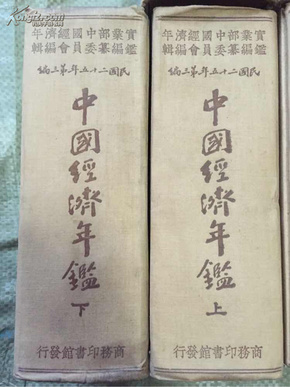 實業部中國經濟年
鑑編纂委員會編輯
民國二十五年第三編
中國經濟年鑑
上
商務印書館發行
實業部中國經濟年
鑑編纂委員會編輯
民國二十五年第三編
中國經濟年鑑
下
商務印書館發行